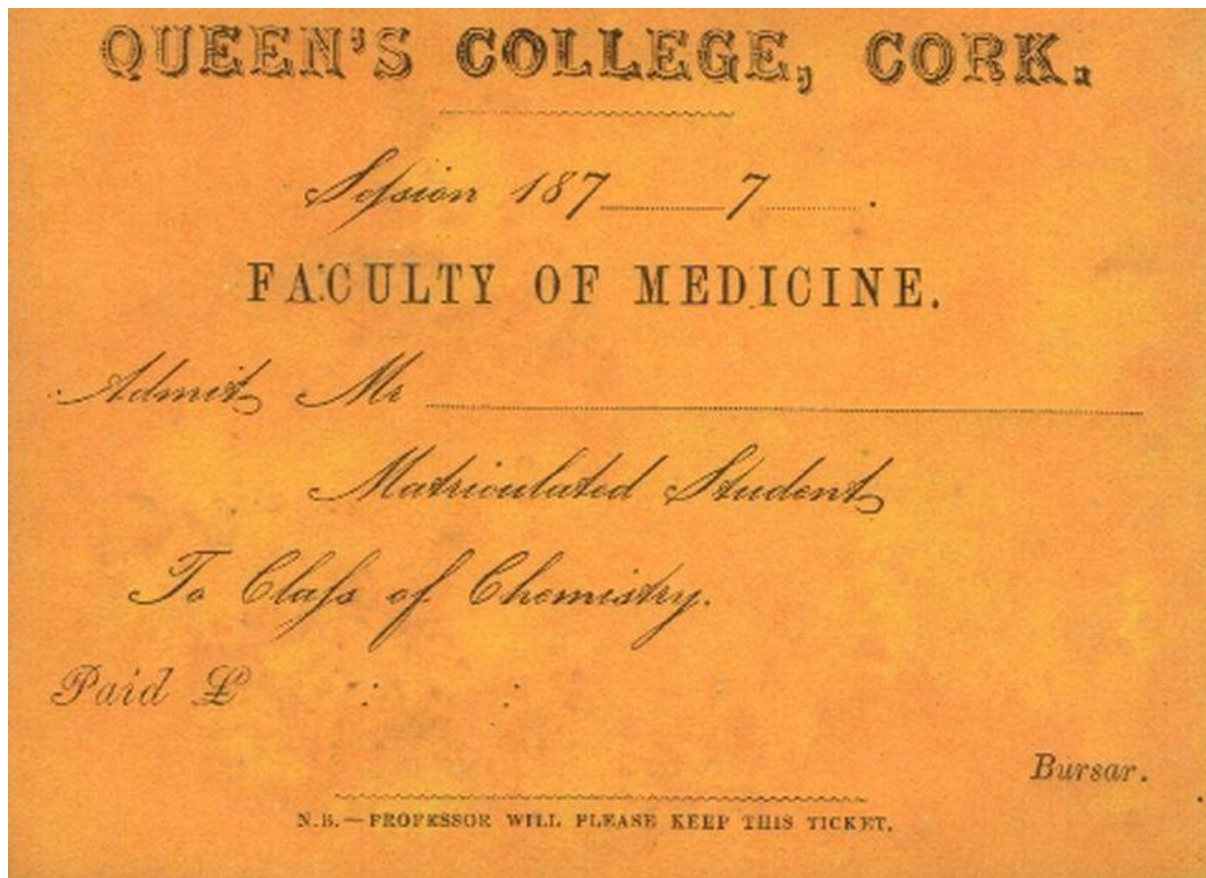 QUEEN'S COLLEGE, CORK.
Session 187 7 .
FACULTY OF MEDICINE.
Admit Mr
Matriculated Student
To Class of Chemistry.
Paid £ : :
Bursar.
N.B.—PROFESSOR WILL PLEASE KEEP THIS TICKET.